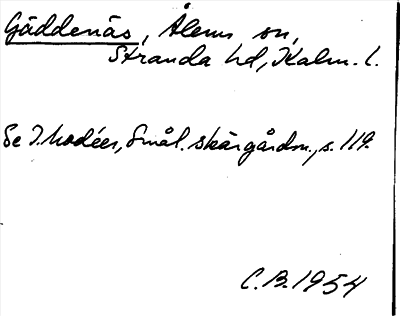 Gäddenäs, Ålems sn,
Stranda hd, Kalm. l.
Se I. Modéer, Smål. skärgårdsn., s. 119.
C.B. 1954